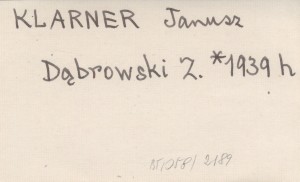 KLARNER Janusz
Dąbrowski Z. *1939 h